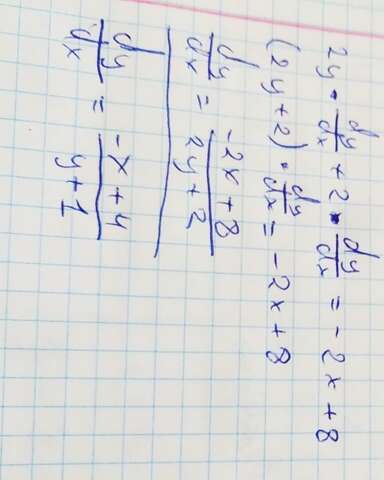 2y · dy/dx + 2 · dy/dx = -2x + 8
(2y + 2) · dy/dx = -2x + 8
dy/dx = -2x + 8 / 2y + 2
dy/dx = -x + 4 / y + 1